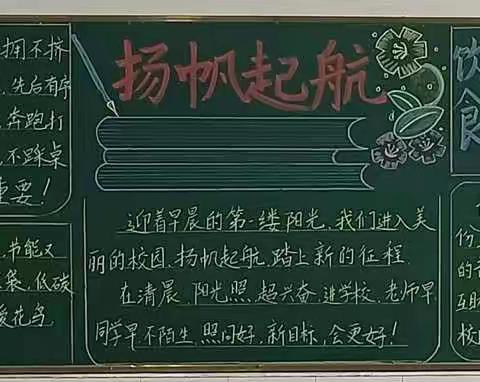 扬帆起航
迎着早晨的第一缕阳光,我们进入美
丽的校园,扬帆起航,踏上新的征程.
在清晨,阳光照,超兴奋,进学校,老师早,
同学早,不陌生,照问好,新目标,会更好!
拥不挤
先后有序
奔跑打
不踩桌
重要!
节能又
袋,低碳
爱花鸟
饮
食
份
的
互助
校